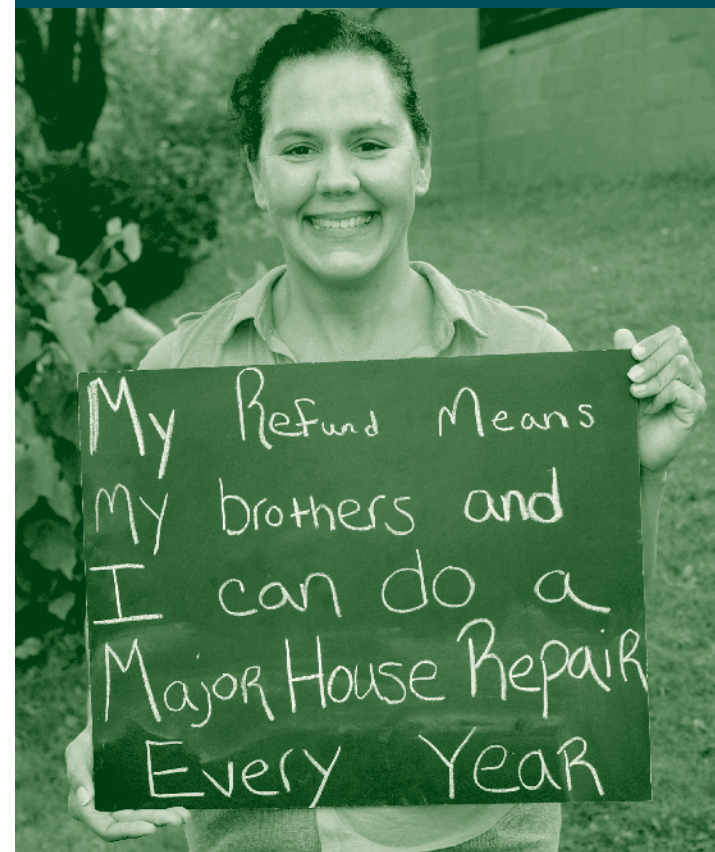 My Refund Means
My brothers and
I can do a
Major House Repair
Every Year